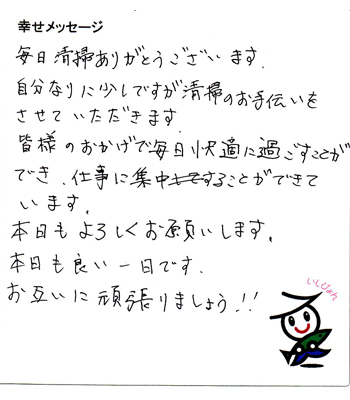 幸せメッセージ
毎日清掃ありがとうございます.
自分なりに少しですが清掃のお手伝いを
させていただきます.
皆様のおかげで毎日快適に過ごすことが
でき、仕事に集中することができて
います.
本日もよろしくお願いします.
本日も良い一日です.
お互いに頑張りましょう!!